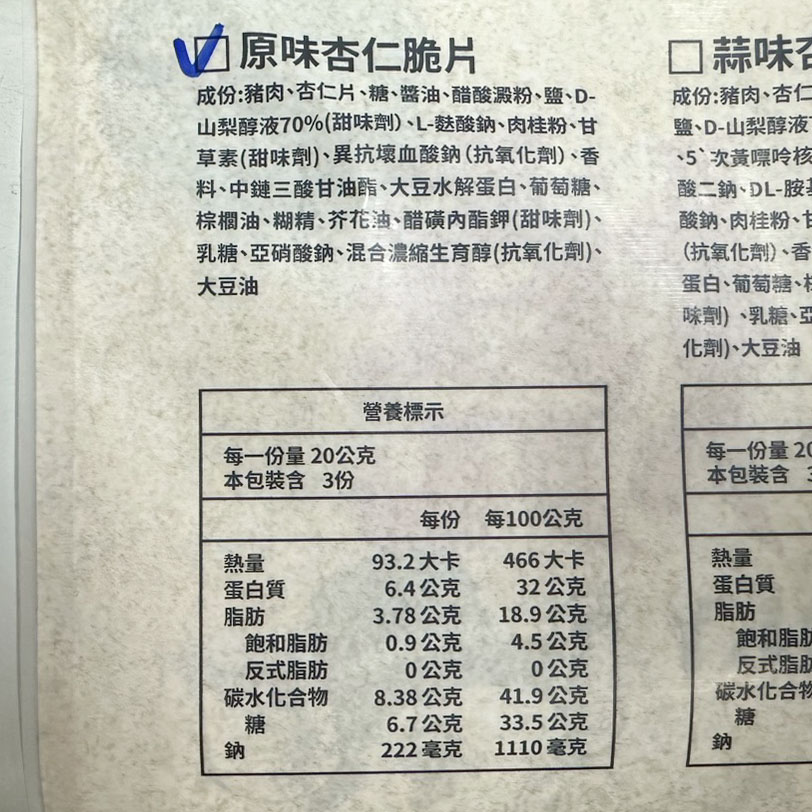 原味杏仁脆片
成份:豬肉、杏仁片、糖、醬油、醋酸澱粉、鹽、D-
山梨醇液70%(甜味劑)、L-麩酸鈉、肉桂粉、甘
草素(甜味劑)、異抗壞血酸鈉(抗氧化劑)、香
料、中鏈三酸甘油酯、大豆水解蛋白、葡萄糖、
棕櫚油、糊精、芥花油、醋磺內酯鉀(甜味劑)、
乳糖、亞硝酸鈉、混合濃縮生育醇(抗氧化劑)、
大豆油
營養標示
每一份量 20公克
本包裝含 3份
每份 每100公克
熱量 93.2 大卡 466 大卡
蛋白質 6.4 公克 32 公克
脂肪 3.78 公克 18.9 公克
飽和脂肪 0.9 公克 4.5 公克
反式脂肪 0 公克 0 公克
碳水化合物 8.38 公克 41.9 公克
糖 6.7 公克 33.5 公克
鈉 222 毫克 1110 毫克
蒜味杏
成份:豬肉、杏仁
鹽、D-山梨醇液
、5`次黃嘌呤核
酸二鈉、DL-胺
酸鈉、肉桂粉、甘
(抗氧化劑)、香
蛋白、葡萄糖、
味劑)、乳糖、亞
化劑)、大豆油
每一份量 20
本包裝含
熱量
蛋白質
脂肪
飽和脂肪
反式脂肪
碳水化合物
糖
鈉